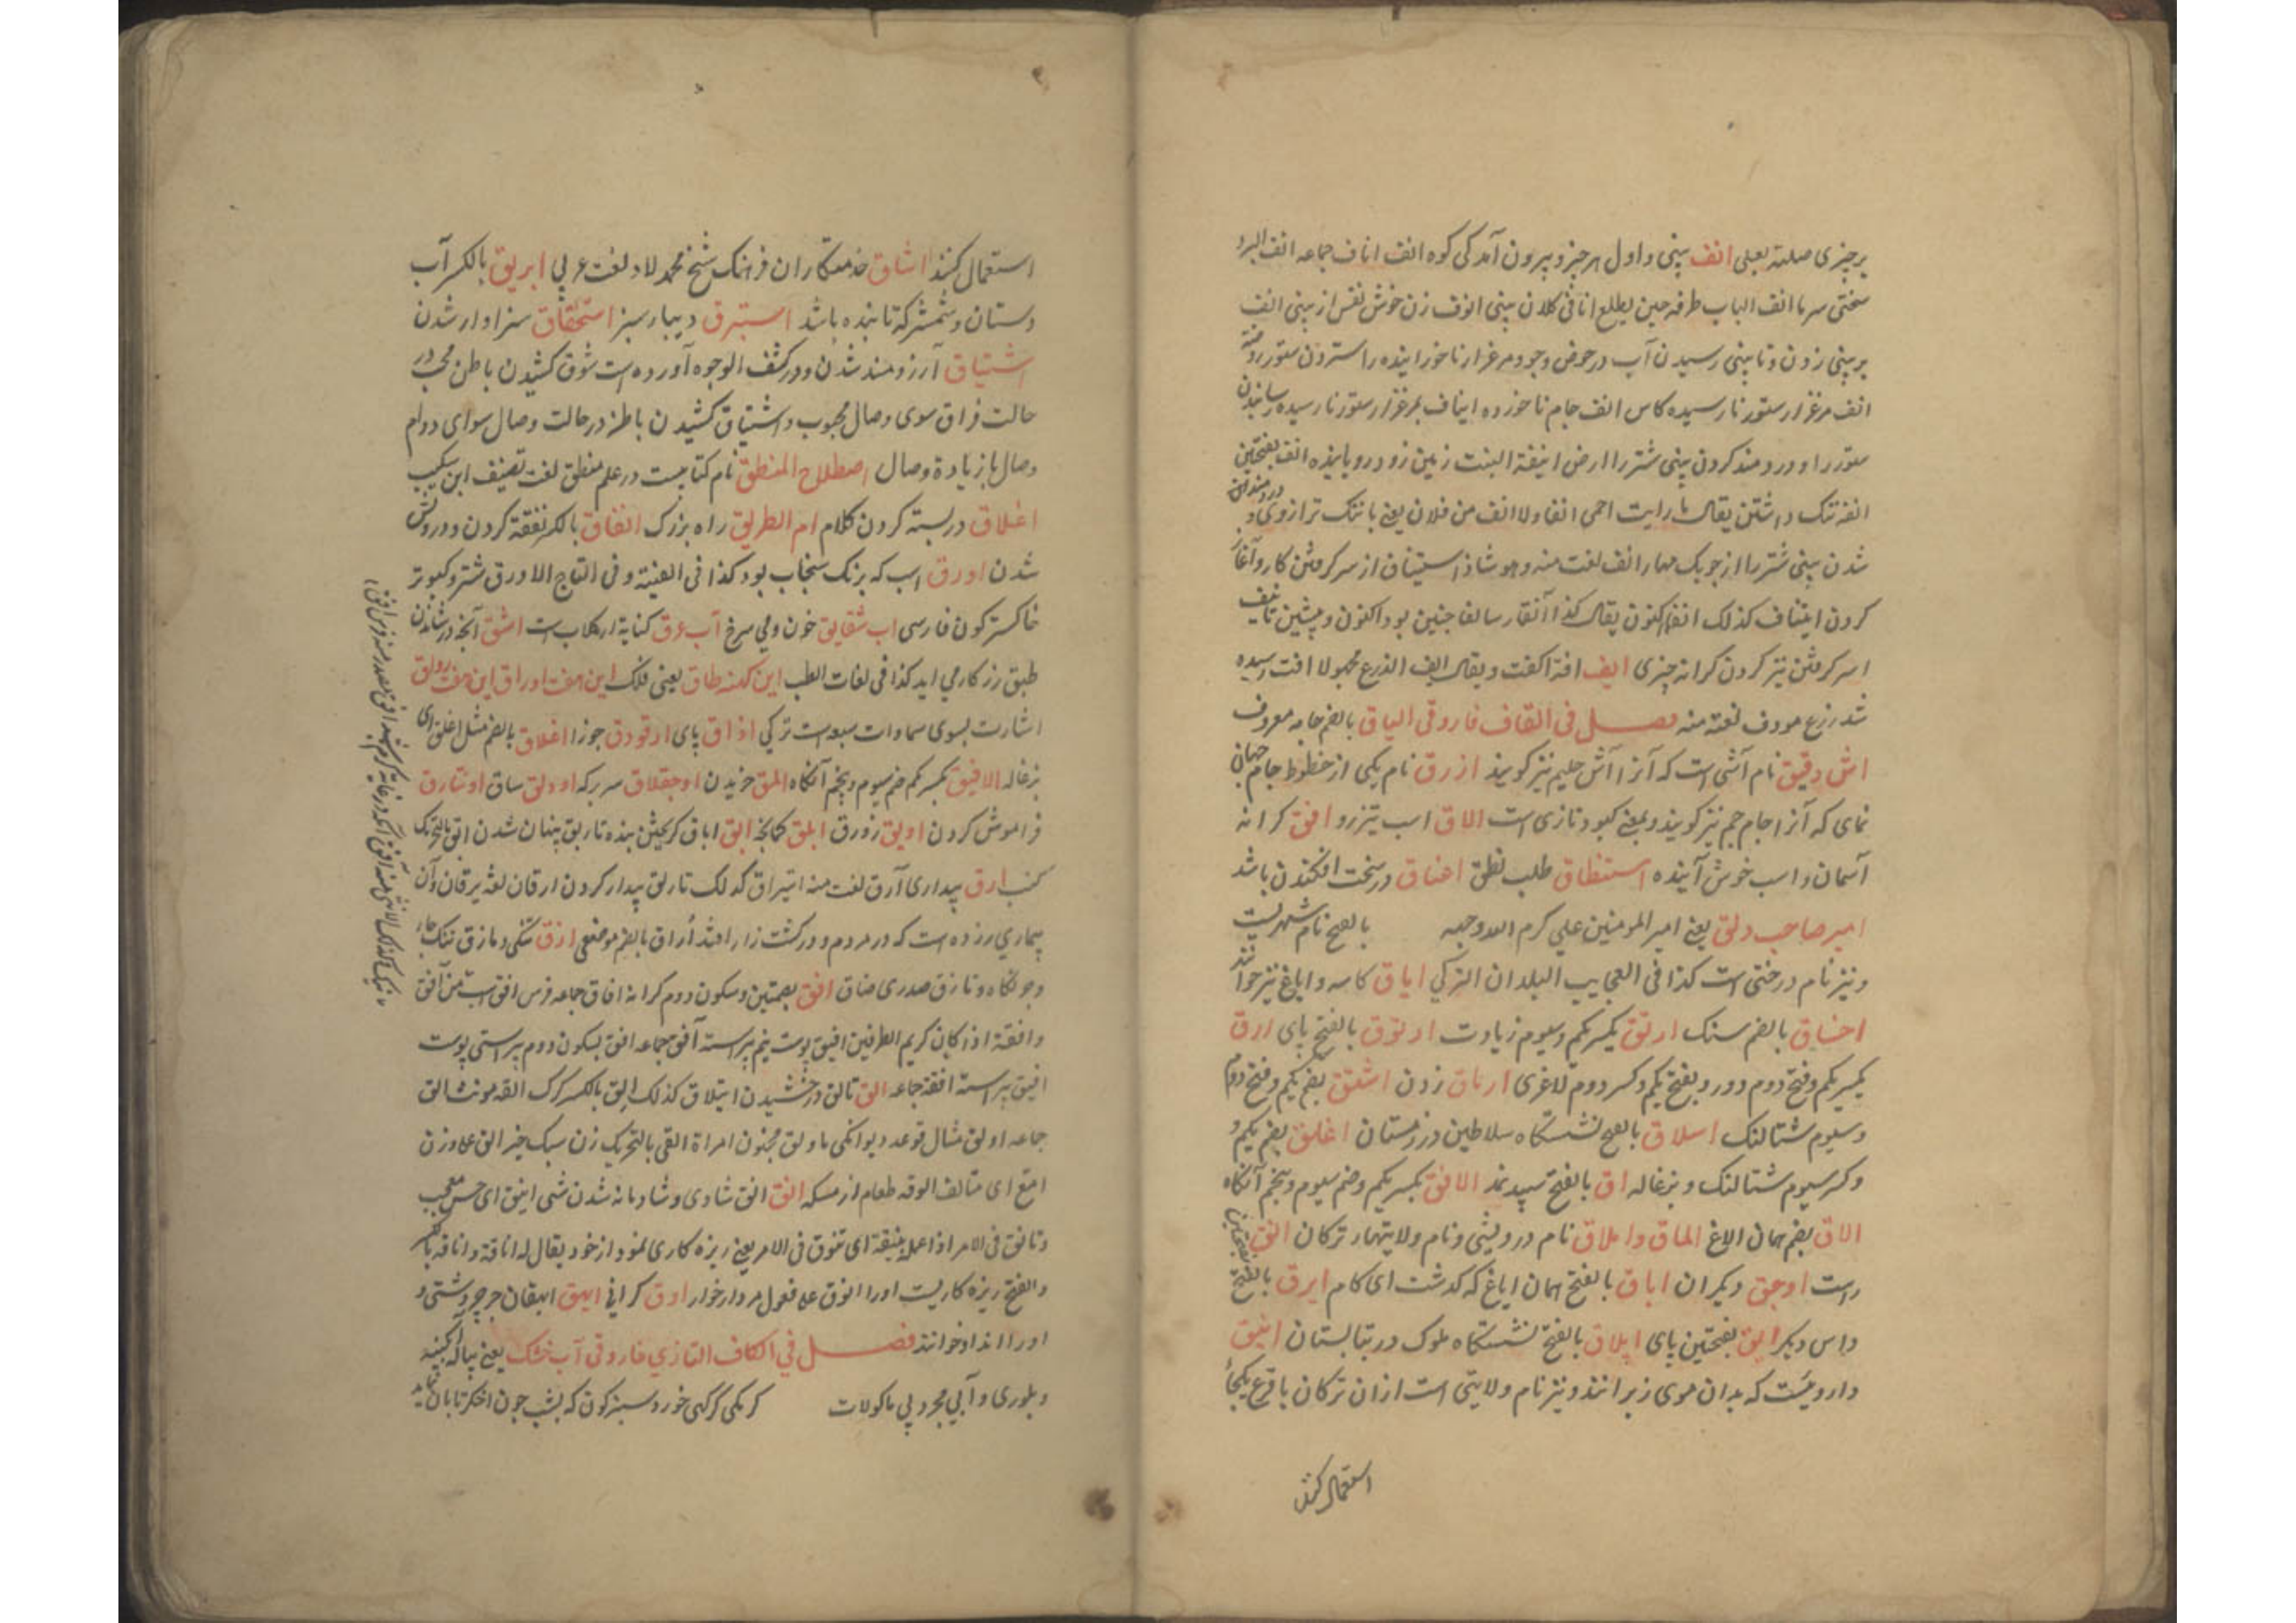 بر چیزی صلته بعلی انف بینی و اول هر چیز و بیرون آمدگی کوه انف اناف جماعه انف البرد
سختی سرما انف الباب طرفه حین یطلع انافی کلان بینی انوف زن خوش نفس از بینی انف
بر بینی زدن و تا بینی رسیدن آب در حوض و جو و مرغزار ناخورانیده را ستردن ستور روضته
انف مرغزار ستور نارسیده کاس انف جام ناخورده ایناف بمرغزار ستور نارسیده رسانیدن
ستور را و دردمند کردن بینی شتر را ارض انیفة النبت زمین زود رویاینده انف بفتحتین
انفه ننک داشتن یقال ما رایت احمی انفا ولا انف من فلان یعنی با ننک تر از وی و دردمند
شدن بینی شتر را از چوبک مهار انف لغت منه و هو شاذ استیناف از سر گرفتن کار و آغاز
کردن ایتناف کذلک یقال کذا آنفا و سالفا چنین بود اکنون و پیشین تانیف
سر کرفتن تیز کردن کرانه چیزی ایف افة آکفت و یقال ایف الزرع مجهولا افت رسیده
شد زرع موؤف لغته منه فصل فی القاف فاروقی الیاق بالضم جامه معروف
اش دقیق نام آشی است که آنرا آش حلیم نیز کویند ازرق نام یکی از خطوط جام جهان
نمای که آنرا جام جم نیز کویند و بمعنی کبود تازی است الاق اسب تیزرو افق کرانه
آسمان و اسب خوش آینده استنطاق طلب نطق اعناق در سخت افکندن باشد
امیر صاحب دلق یعنی امیر المومنین علی کرم الله وجهه بالفتح نام شهریست
و نیز نام درختی است کذا فی العجایب البلدان الترکی ایاق کاسه و ایاغ نیز خوانند
اخساق بالضم سنک ارتق بکسر یکم و سیوم زیادت ارتوق بالفتح پای ارق
بکسر یکم و فتح دوم دور و بفتح یکم و کسر دوم لاغری زدن اشتق بضم یکم و فتح دوم
و سیوم شتالنک اسلاق بالفتح نشستگاه سلاطین در زمستان اغلق بضم یکم و
و کسر سیوم شتالنک و بزغاله اق بالفتح سپید نمد الافق بکسر یکم و ضم سیوم و بخم آنکاه
الاق بضم همان الاغ الماق و املاق نام درویشی و نام ولایتهار ترکان الق بفتحتین
راست اوجق دیکران ایاق بالفتح همان ایاغ که کدشت ای کام ایرق بالفتح
داس دیکر ایق بفتحتین پای ایلاق بالفتح نشستگاه ملوک در تابستان ایتق
دارویست که بدان موی زیر انند و نیز نام ولایتی است از ان ترکان با قرع یکجا
استعمال کنند
استعمال کنند اشاق خدمتکاران فرهنک شیخ محمد لاد لغت عربی ابریق بالکسر آب
دستان و شمشیر که تابنده باشد استبرق دیبا سبز استحقاق سزاوار شدن
اشتیاق آرزومند شدن و در کشف الوجوه آورده است شوق کشیدن باطن محب در
حالت فراق سوی وصال محبوب و اشتیاق کشیدن باطن در حالت وصال سوای دوام
وصال یا زیادة وصال اصطلاح المنطق نام کتابیست در علم منطق لغت تصنیف ابن سکیت
اغلاق در بسته کردن کلام ام الطریق راه بزرک انفاق بالکسر نفقه کردن و درویش
شدن اورق اسب که برنک سنجاب بود کذا فی القنیة و فی التاج الاورق شتر و کبوتر
خاکستر کون فارسی اب شقایق خون و می سرخ آب عرق کنایة از کلاب است اشق آنچه در نشاندن
طبق زر کار می اید کذا فی لغات الطب این کهنه طاق یعنی فلک این هفت اوراق این هفت رواق
اشارت بسوی سماوات سبعه است ترکی اذاق پای ارقودق جوزا اغلاق بالضم مثل اغلق ای
بزغاله الافیق بکسر یکم ضم سیوم و بخم آنکاه المق خریدن اوجقلاق سر برکه اودلق ساق اونتارق
فراموش کردن اویق زورق ایلق کمانچه ابق اباق کریختن بنده تابق پنهان شدن ابق بالتحریک
کنب ارق بیداری آرق لغت منه ایتراق کذلک تاریق بیدار کردن ارقان لغة یرقان و آن
بیماری زرده است که در مردم و در کشت زار افتد أراق بالضم موضعی ازق تنکی و مازق تنک جای
و جونکاه و تازق صدری ضاق افق بضمتین و سکون دوم کرانه افاق جماعه فرس افق است من آفق
و افقة اذا کان کریم الطرفین افیق پوست نیم پیراسته آفق جماعه افق بسکون دوم پیراستن پوست
افیق پیراسته افقه جماعه الق تالق درخشیدن ایتلاق کذلک الق بالکسر کرک القه مونث الق
جماعه اولق مثال فوعل دیوانکی ماولق مجنون امراة القی بالتحریک زن سبک خیز الق علی وزن
امع ای متالق الوقه طعام از مسکه انق انق شادی و شادمانه شدن شی انیق ای حسن معجب
و تانق فی الامر اذا عمله بنیقة ای تنوق فی الامر یعنی ریزه کاری نمود از خود یقال له اناقة و اناقه بالکسر
و الفتح ریزه کاریست اورا انوق علی فعول مردار خوار اوق کرانی ایهق ایهقان جرجیر دشتی و
اورا انداو خوانند فصل فی الکاف التازی فاروقی آب خشک یعنی پیاله آبکینه
و بلوری و آبی مجرد بی ماکولات کرمکی خورد سبز کون که بشب چون اخکر تابان نماید